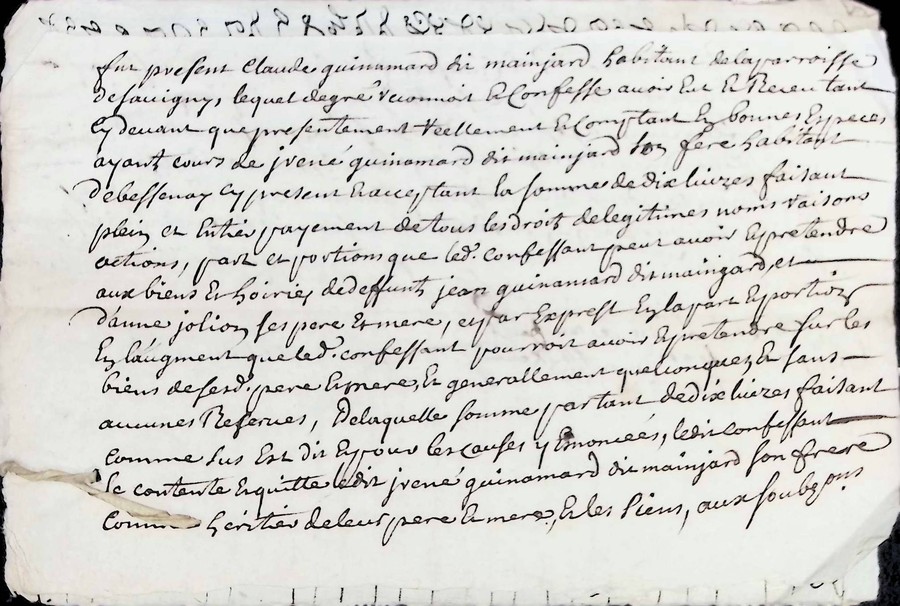 fut present Claude guinamard dit mainjard habitant delaparroisse
desavigny, lequel degré reconnoit Et Confesse avoir Eut Et Receu tant
Cy devant que presentement reellement Et Comptant En bonnes Especes
ayant cours de jrené guinamard dit mainjard son frere habitant
debessenay Cy present Et acceptant la somme de dix livres faisant
plein et Entier payement de tous les droit de legitimes noms raisons
actions, part et portions que led. confessant peut avoir Et pretendre
aux biens Et hoiries dedeffunt jean guinamard dit maingard, et
d'anne jolion ses pere Et mere, et par Exprest En la part Et portion
En l'augment que led. confessant pourroit avoir Et pretendre sur les
biens desesd. pere Et mere, Et generallement quelconques Et sans
aucunes Reserves, Delaquelle somme partant dedix livres faisant
comme sus Est dit Et pour les causes y Enoncées, ledit confessant
se contente Et quitte ledit jrené guinamard dit mainjard son frere
comme héritier deleur pere Et mere, Et les siens, aux soubz